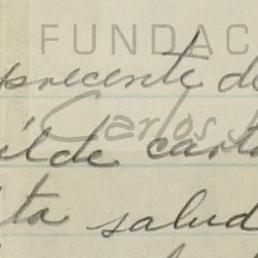 FUNDAC
precente de
Carlos
ilde carta
ta salud